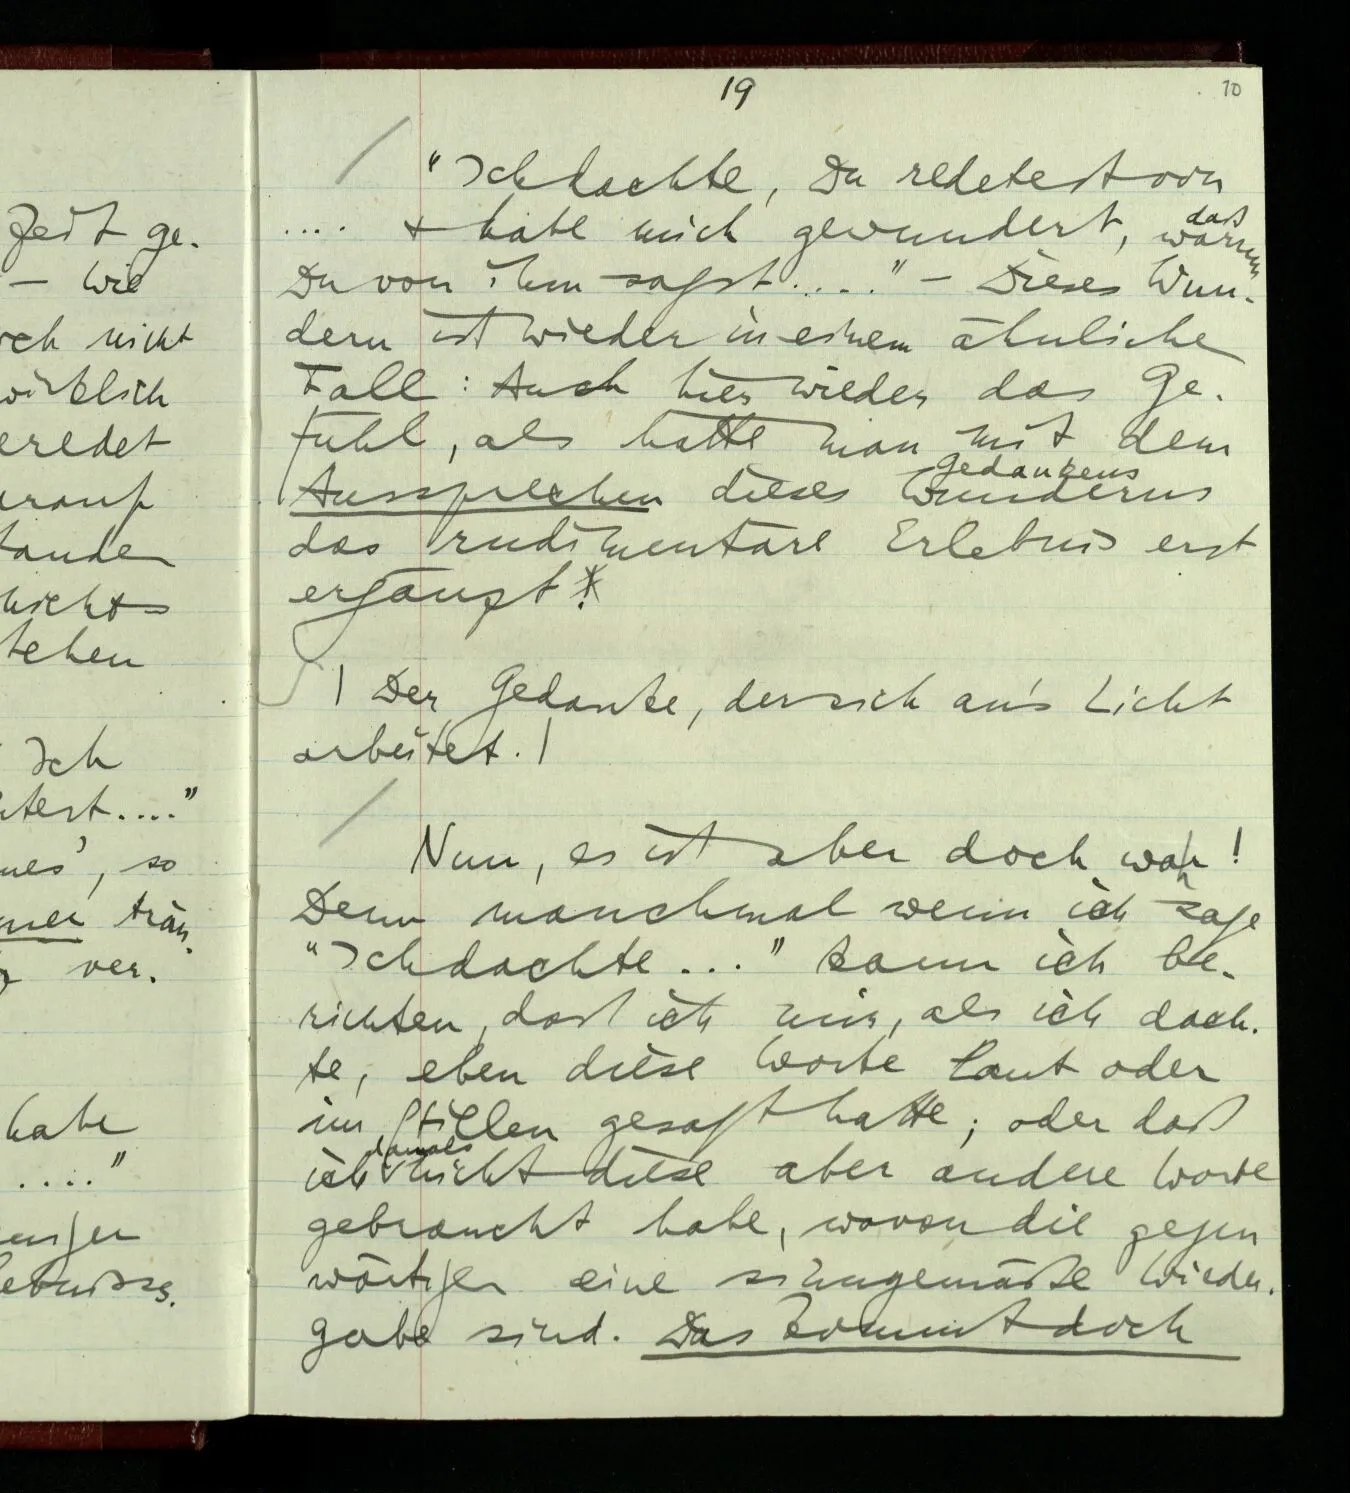 Zeit ge-
— wie
och nicht
wirklich
eredet
arauf
tanden
nichts
tehen
Ich
test...."
nes', so
ner trän,
ver-
habe
...."
lebnisses.
19
10
"Ich dachte, Du redetest von
.... + habe mich gewundert, daß warum
Du von ihm sagst....." – Dieses Wun-
dern ist wieder in einem ähnliche
Fall: Auch hier wieder das Ge-
fühl, als hätte man mit dem
gedankens
Aussprechen dieses Wunderns
das rudimentäre Erlebnis erst
ergänzt!
| Der Gedanke, der sich an's Licht
arbeitet. |
Nun, es ist aber doch wahr!
Denn manchmal wenn ich sage
"Ich dachte..." kann ich be-
richten, daß ich mir, als ich dach-
te, eben diese Worte laut oder
im Stillen gesagt hatte; oder daß
damals
ich nicht diese aber andere Worte
gebraucht habe, wovon die gegen
wärtigen eine sinngemäße Wieder-
gabe sind. Das kommt doch